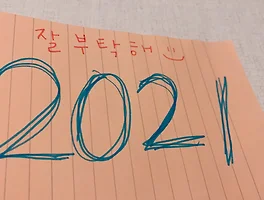 잘 부탁해 :)
2021